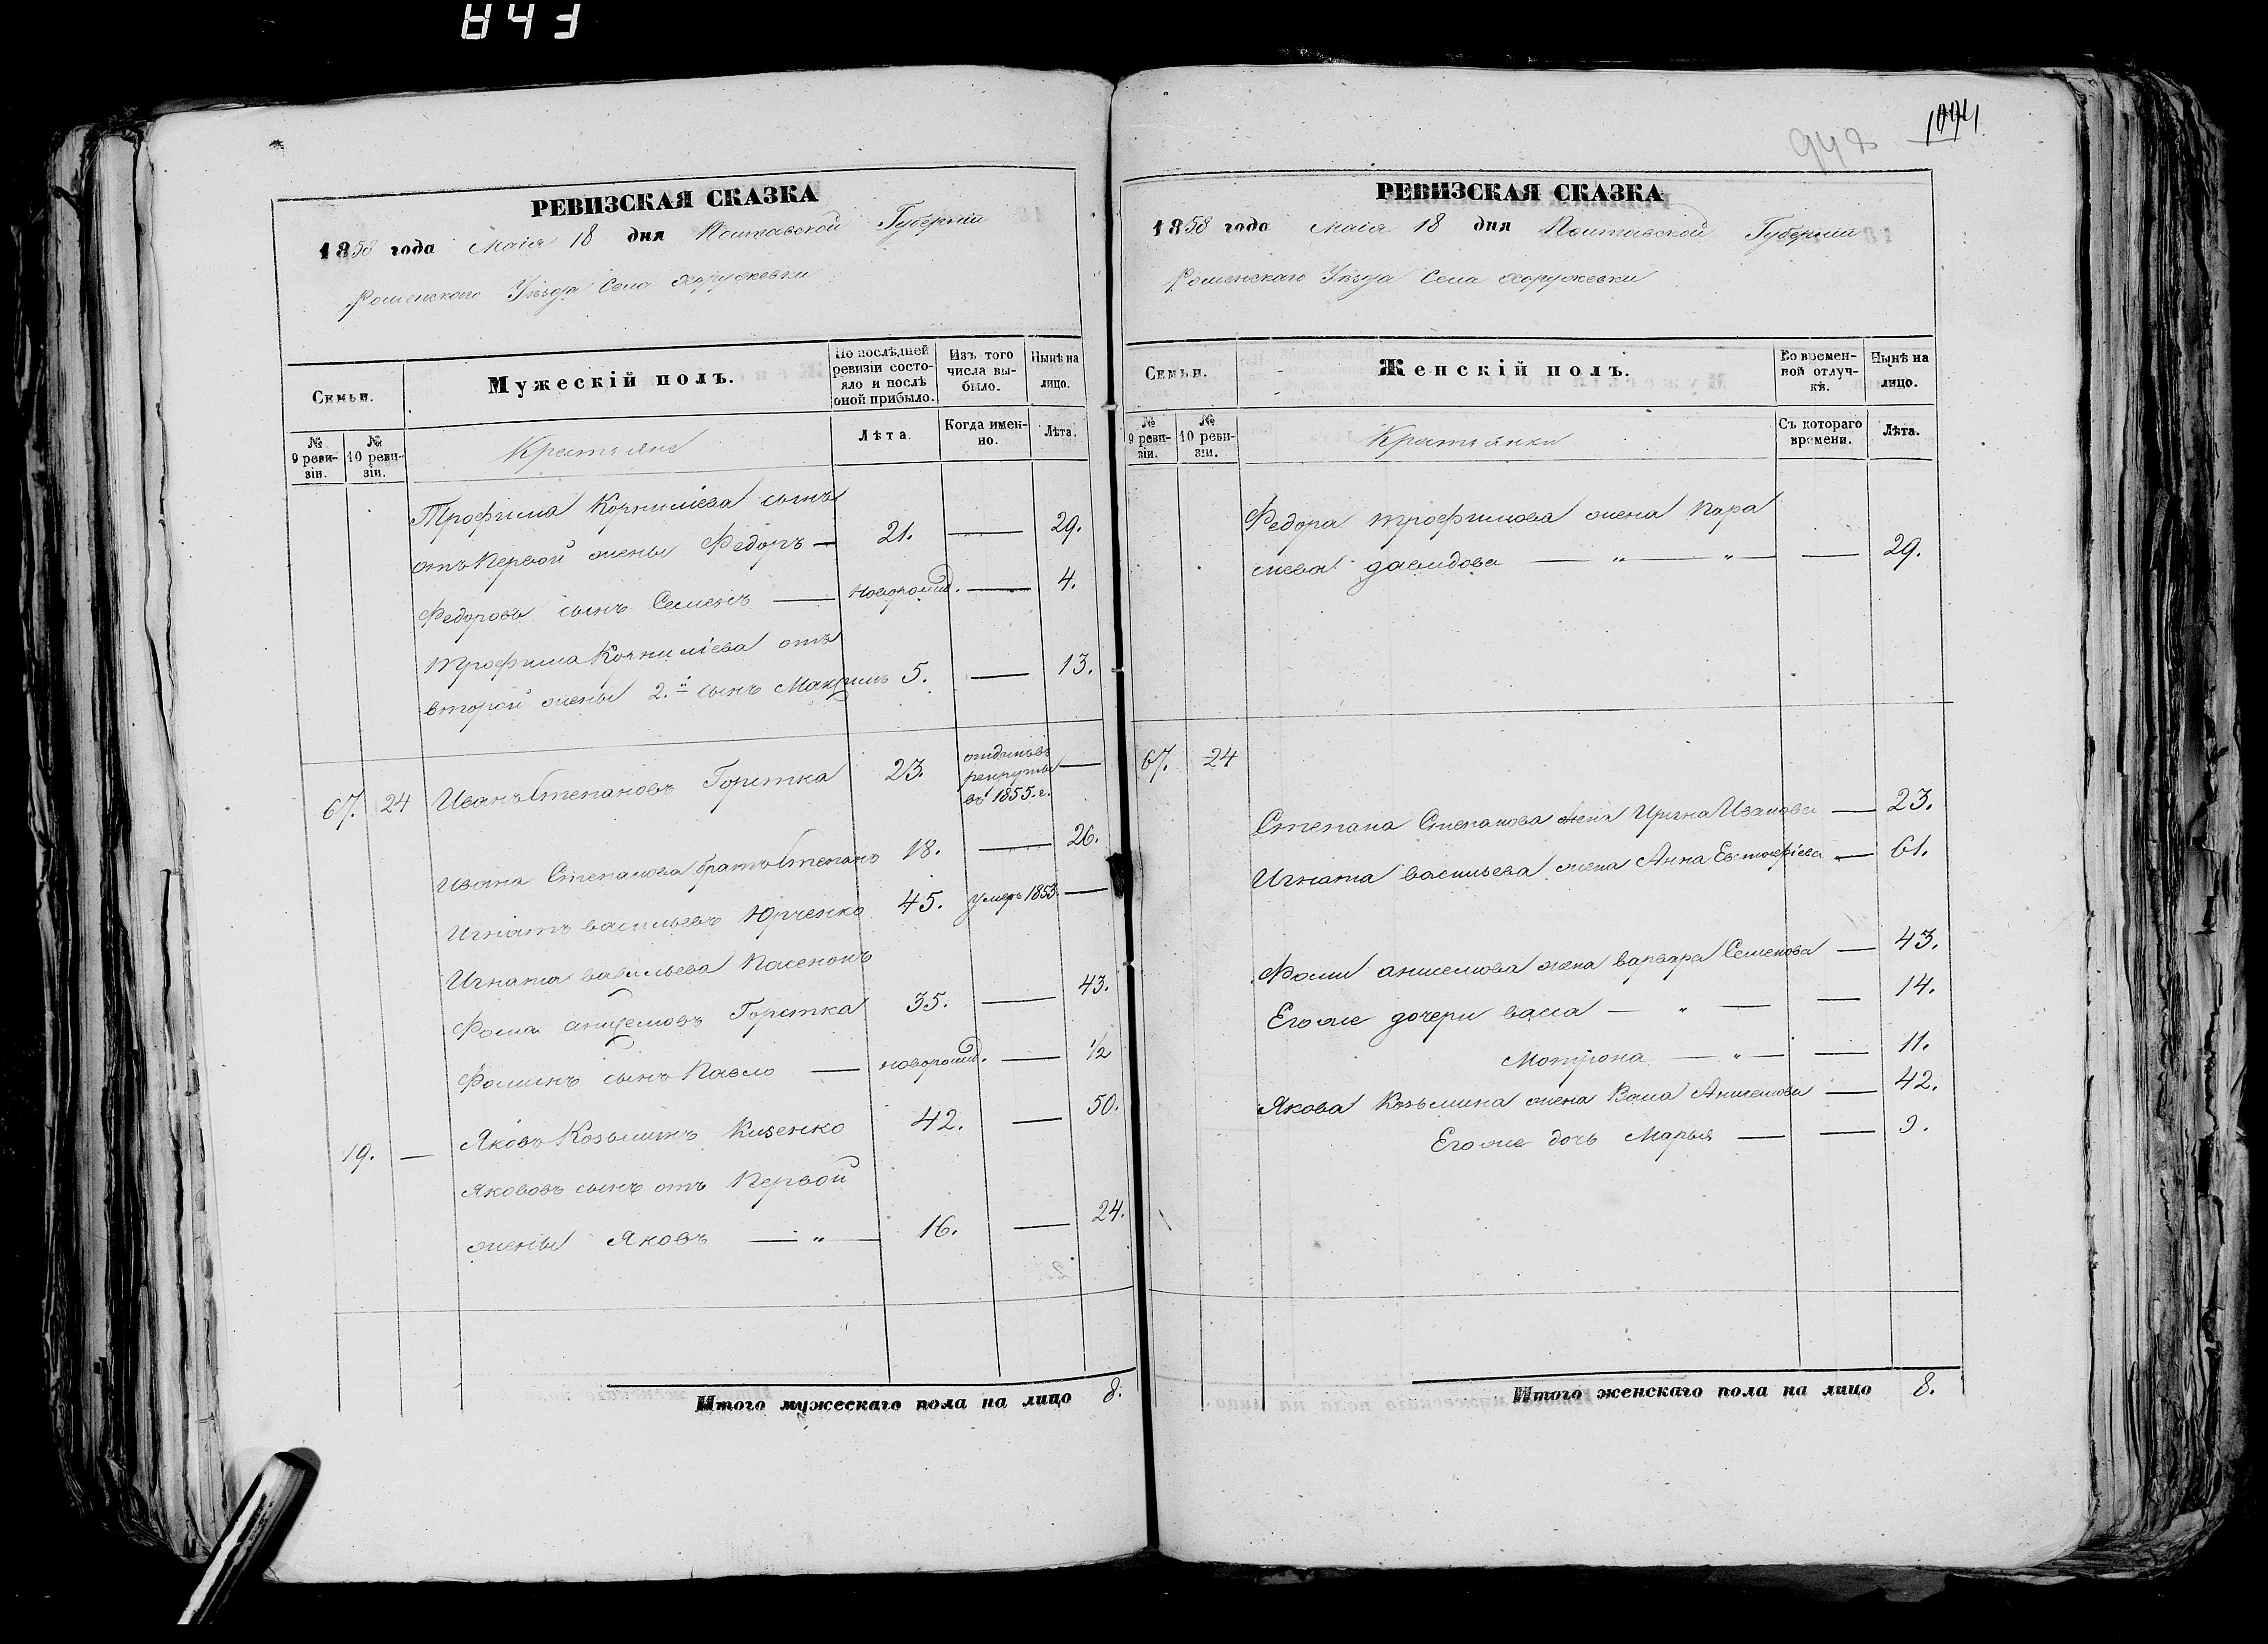 РЕВИЗСКАЯ СКАЗКА
1858 года Маія 18 дня Полтавской Губерніи
Роменскаго Уѣзда Села Хоружевки
Семьи.
Мужескій полъ.
По послѣдней ревизіи состояло и послѣ оной прибыло.
Изъ того числа выбыло.
Нынѣ на лицо.
№ 9 ревизіи.
№ 10 ревизіи.
Крестьяне
Лѣта.
Когда именно.
Лѣта.
Трофима Корнилiева сынъ
отъ Первой жены Федоръ — 21. — 29.
Федоровъ сынъ Семенъ — новорожд. — 4.
Трофима Корнилiева отъ
второй жены 2.й сынъ Максимъ 5. — 13.
67. 24 Иванъ Степановъ Горстка 23. отданъ въ рекруты въ 1855. г. —
Ивана Степанова братъ Степанъ 18. — 26.
Игнатъ васильевъ Юрченко 45. умеръ 1853. —
Игната васильева Пасенокъ
Фома анисемовъ Горстка 35. — 43.
Фоминъ сынъ Павло — новорожд. — 1/2
19. — Яковъ Козьминъ Кизенко 42. — 50.
Якововъ сынъ отъ Первой
жены Яковъ — „ — 16. — 24.
Итого мужескаго пола на лицо 8.
948
РЕВИЗСКАЯ СКАЗКА
1858 года Маія 18 дня Полтавской Губерніи
Роменскаго Уѣзда Села Хоружевки
Семьи.
Женскій полъ.
Во временной отлучкѣ.
Нынѣ на лицо.
№ 9 ревизіи.
№ 10 ревизіи.
Крестьянки
Съ котораго времени.
Лѣта.
Федора трофимова жена Пара
скева давидова — „ — „ — — 29.
67. 24
Степана Степанова жена Ирина Иванова — 23.
Игната васильева жена Анна Евтифіева — 61.
Фомы анисемова жена варвара Семенова — 43.
Его же дочери васса — „ — — 14.
Мотрона — „ — — 11.
Якова Козьмина жена Васса Анисемова — 42.
Его же дочь Марья — — 9.
Итого женскаго пола на лицо 8.